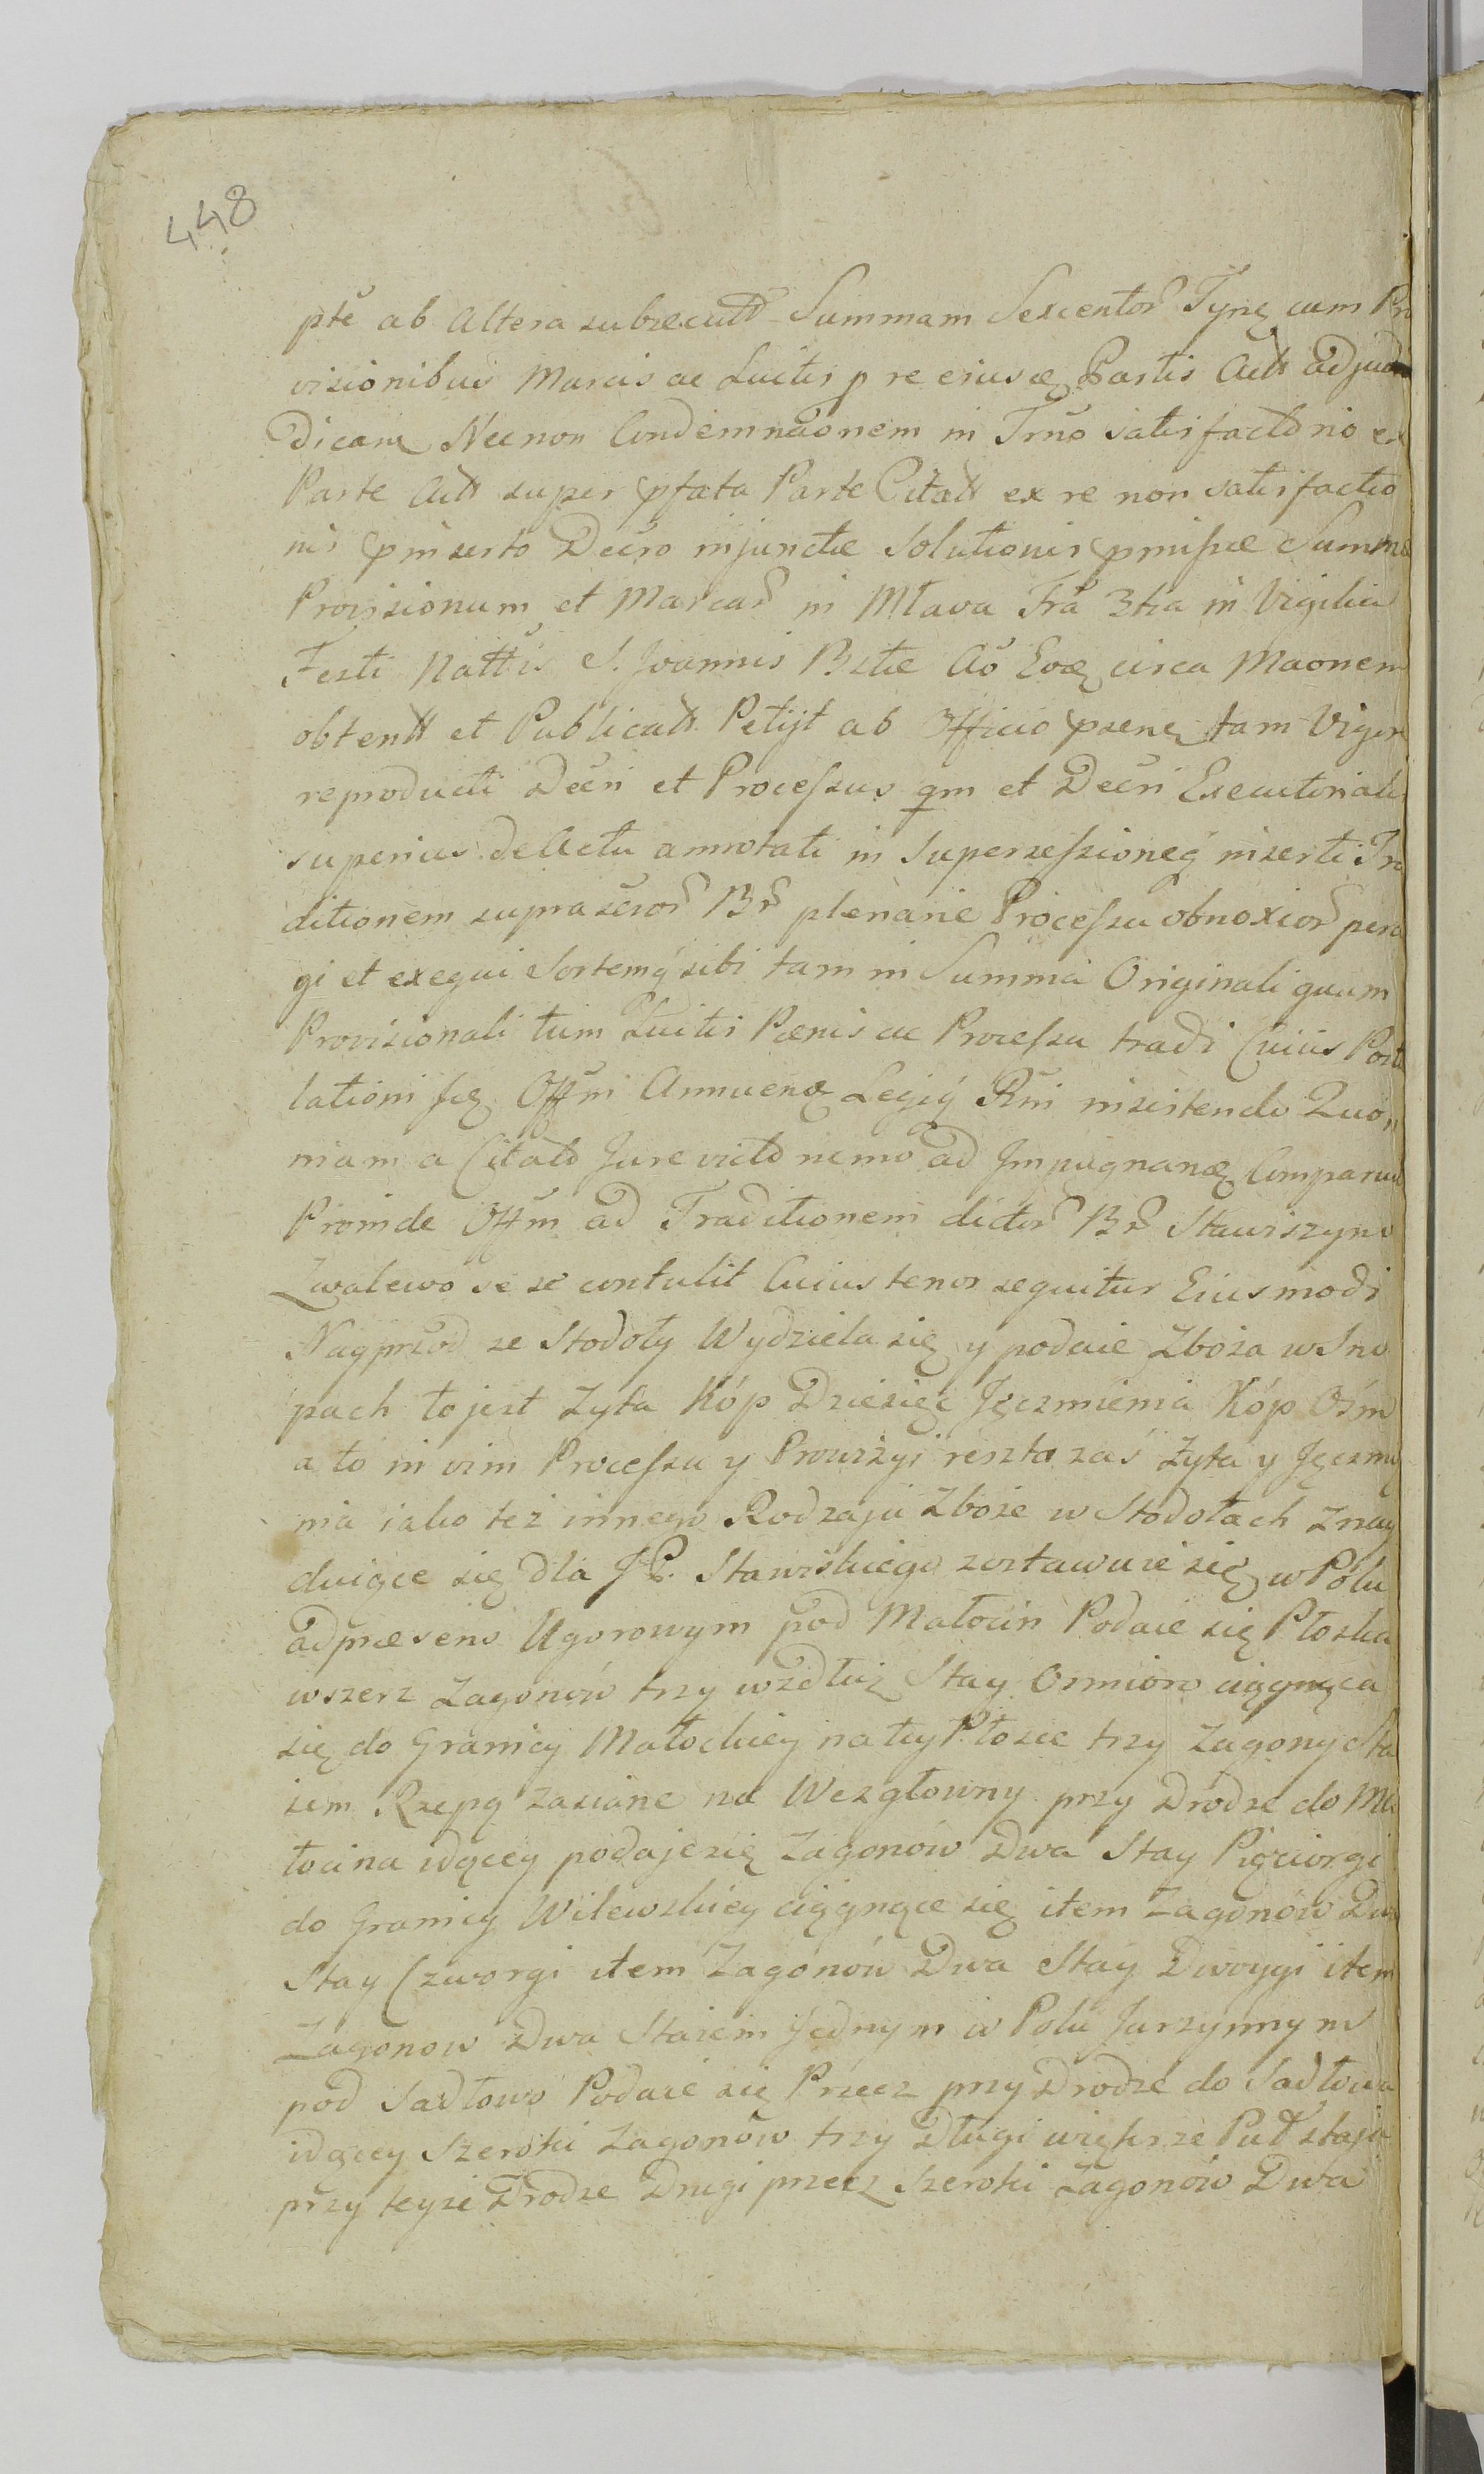 448
pte ab Altera subsecutt Summam Sexcentor Tynf cum Pro
visionibus Marcis ac Luitis p re eiusd Partis Actt adju
dicam Necnon Condemnaonem in Trno satisfactorio ex
Parte Actt super pfata Parte Citatt ex re non satisfactio
nis pinserto Decro injunctæ Solutionis pmissæ Summæ
Provisionum et Marcar in Mlava Fra 3tia in Vigilia
Festi Nattis S. Joannis Bstæ Ao Eod circa Maonem
obtentt et Publicatt Petijt ab Officio psenti tam Vigore
reproducti Decri et Processus qm et Decri Executorialis
superius de Actu annotati in Supersessioneq inserti Tra
ditionem suprascror Br plenarie Processu obnoxior pera
gi et exequi Sortemq sibi tam in Summa Originali quam
Provisionali tum Luitis Pænis ac Processu tradi Cuius Postu
lationi Offm Annuend Legiq Rni insistendo Quo
niam a Citato Jure victo nemo ad Impugnand Comparuit
Proinde Offm ad Traditionem dictor Br Stawiszyno
Zwalewo se se contulit Cuius tenor sequitur Eiusmodi
Nayprzod ze Stodoły Wydziela się y podaie Zboża w Sno
pach to jest Zyta Kóp Dziesięć Jęczmienia Kóp Ośm
a to in vim Processu y Prowizyi reszta zaś Zyta y Jęczmie
nia iako też innego Rodzaju Zboże w Stodołach Znay
duiące się dla JP. Stawiskiego zostawuie się w Polu
ad præsens Ugorowym pod Matocin Podaie się Płoska
wszerz Zagonów trzy wzdłuż Stay Ośmioro ciągnąca
się do Granicy Matockiey na tey Płosce trzy Zagony Sta
iem Rzepą zasiane na Wezgłowny przy Drodze do Ma
tocina idącey podaje się Zagonów Dwa Stay Pięciorgi
do Granicy Wilewskiey ciągnące się item Zagonów Dwa
Stay Czworgi item Zagonów Dwa Stay Dwoygi item
Zagonow Dwa Staiem Jednym w Polu Jarzynnym
pod Sadłowo Podaie się Przecz przy Drodze do Sadłowa
idącey Szeroki Zagonów trzy Długi większe Puł staja
przy teyże Drodze Drugi przecz Szeroki Zagonów Dwa